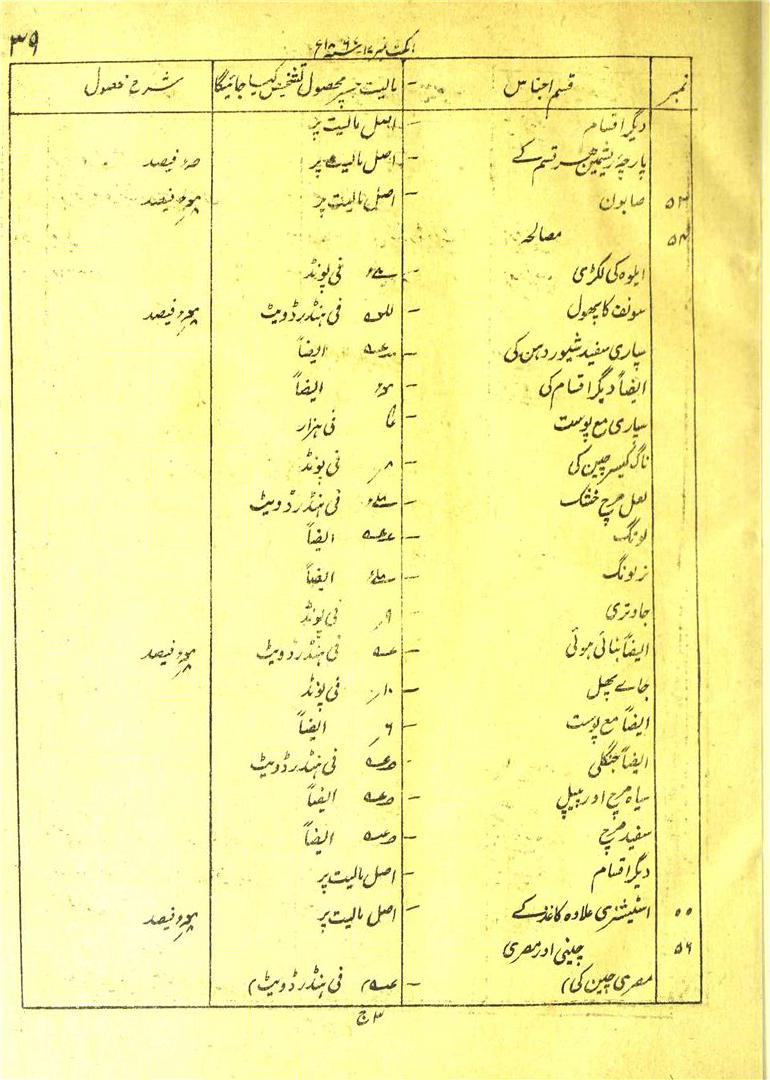 ۳۹
ایکٹ نمبر ۱۷ ۱۸۶۷ء
نمبر قسم اجناس مالیت جسپر محصول تشخیص کیا جائیگا شرح محصول
دیگر اقسام – اصل مالیت پر
پارچہ ریشمین ہر قسم کے – اصل مالیت پر فیصد
۵۳ صابون – اصل مالیت پر فیصد
۵۴ مصالحہ
ایلوہ کی لکڑی – فی پونڈ
سونف کا پھول – فی ہنڈرڈویٹ فیصد
سپاری سفید شیوردہن کی – ایضاً
ایضاً دیگر اقسام کی – ایضاً
سپاری مع پوست – فی ہزار
ناگ کیسر چین کی – ۸؍ فی پونڈ
لعل مرچ خشک – فی ہنڈرڈویٹ
لونگ – ایضاً
نر لونگ – ایضاً
جاوتری – ۹؍ فی پونڈ
ایضاً بنائی ہوئی – فی ہنڈرڈویٹ فیصد
جاے پھل – ۱۰؍ فی پونڈ
ایضاً مع پوست – ۶؍ ایضاً
ایضاً جنگلی – فی ہنڈرڈویٹ
سیاہ مرچ اور پیپل – ایضاً
سفید مرچ – ایضاً
دیگر اقسام – اصل مالیت پر
۵۵ اسٹیشنری علاوہ کاغذ کے – اصل مالیت پر فیصد
۵۶ چینی اور مصری
مصری چین کی) – فی ہنڈرڈویٹ)
۳ ج